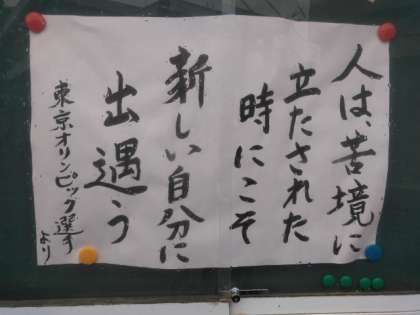 人は、苦境に
立たされた
時にこそ
新しい自分に
出遇う
東京オリンピック選手
より